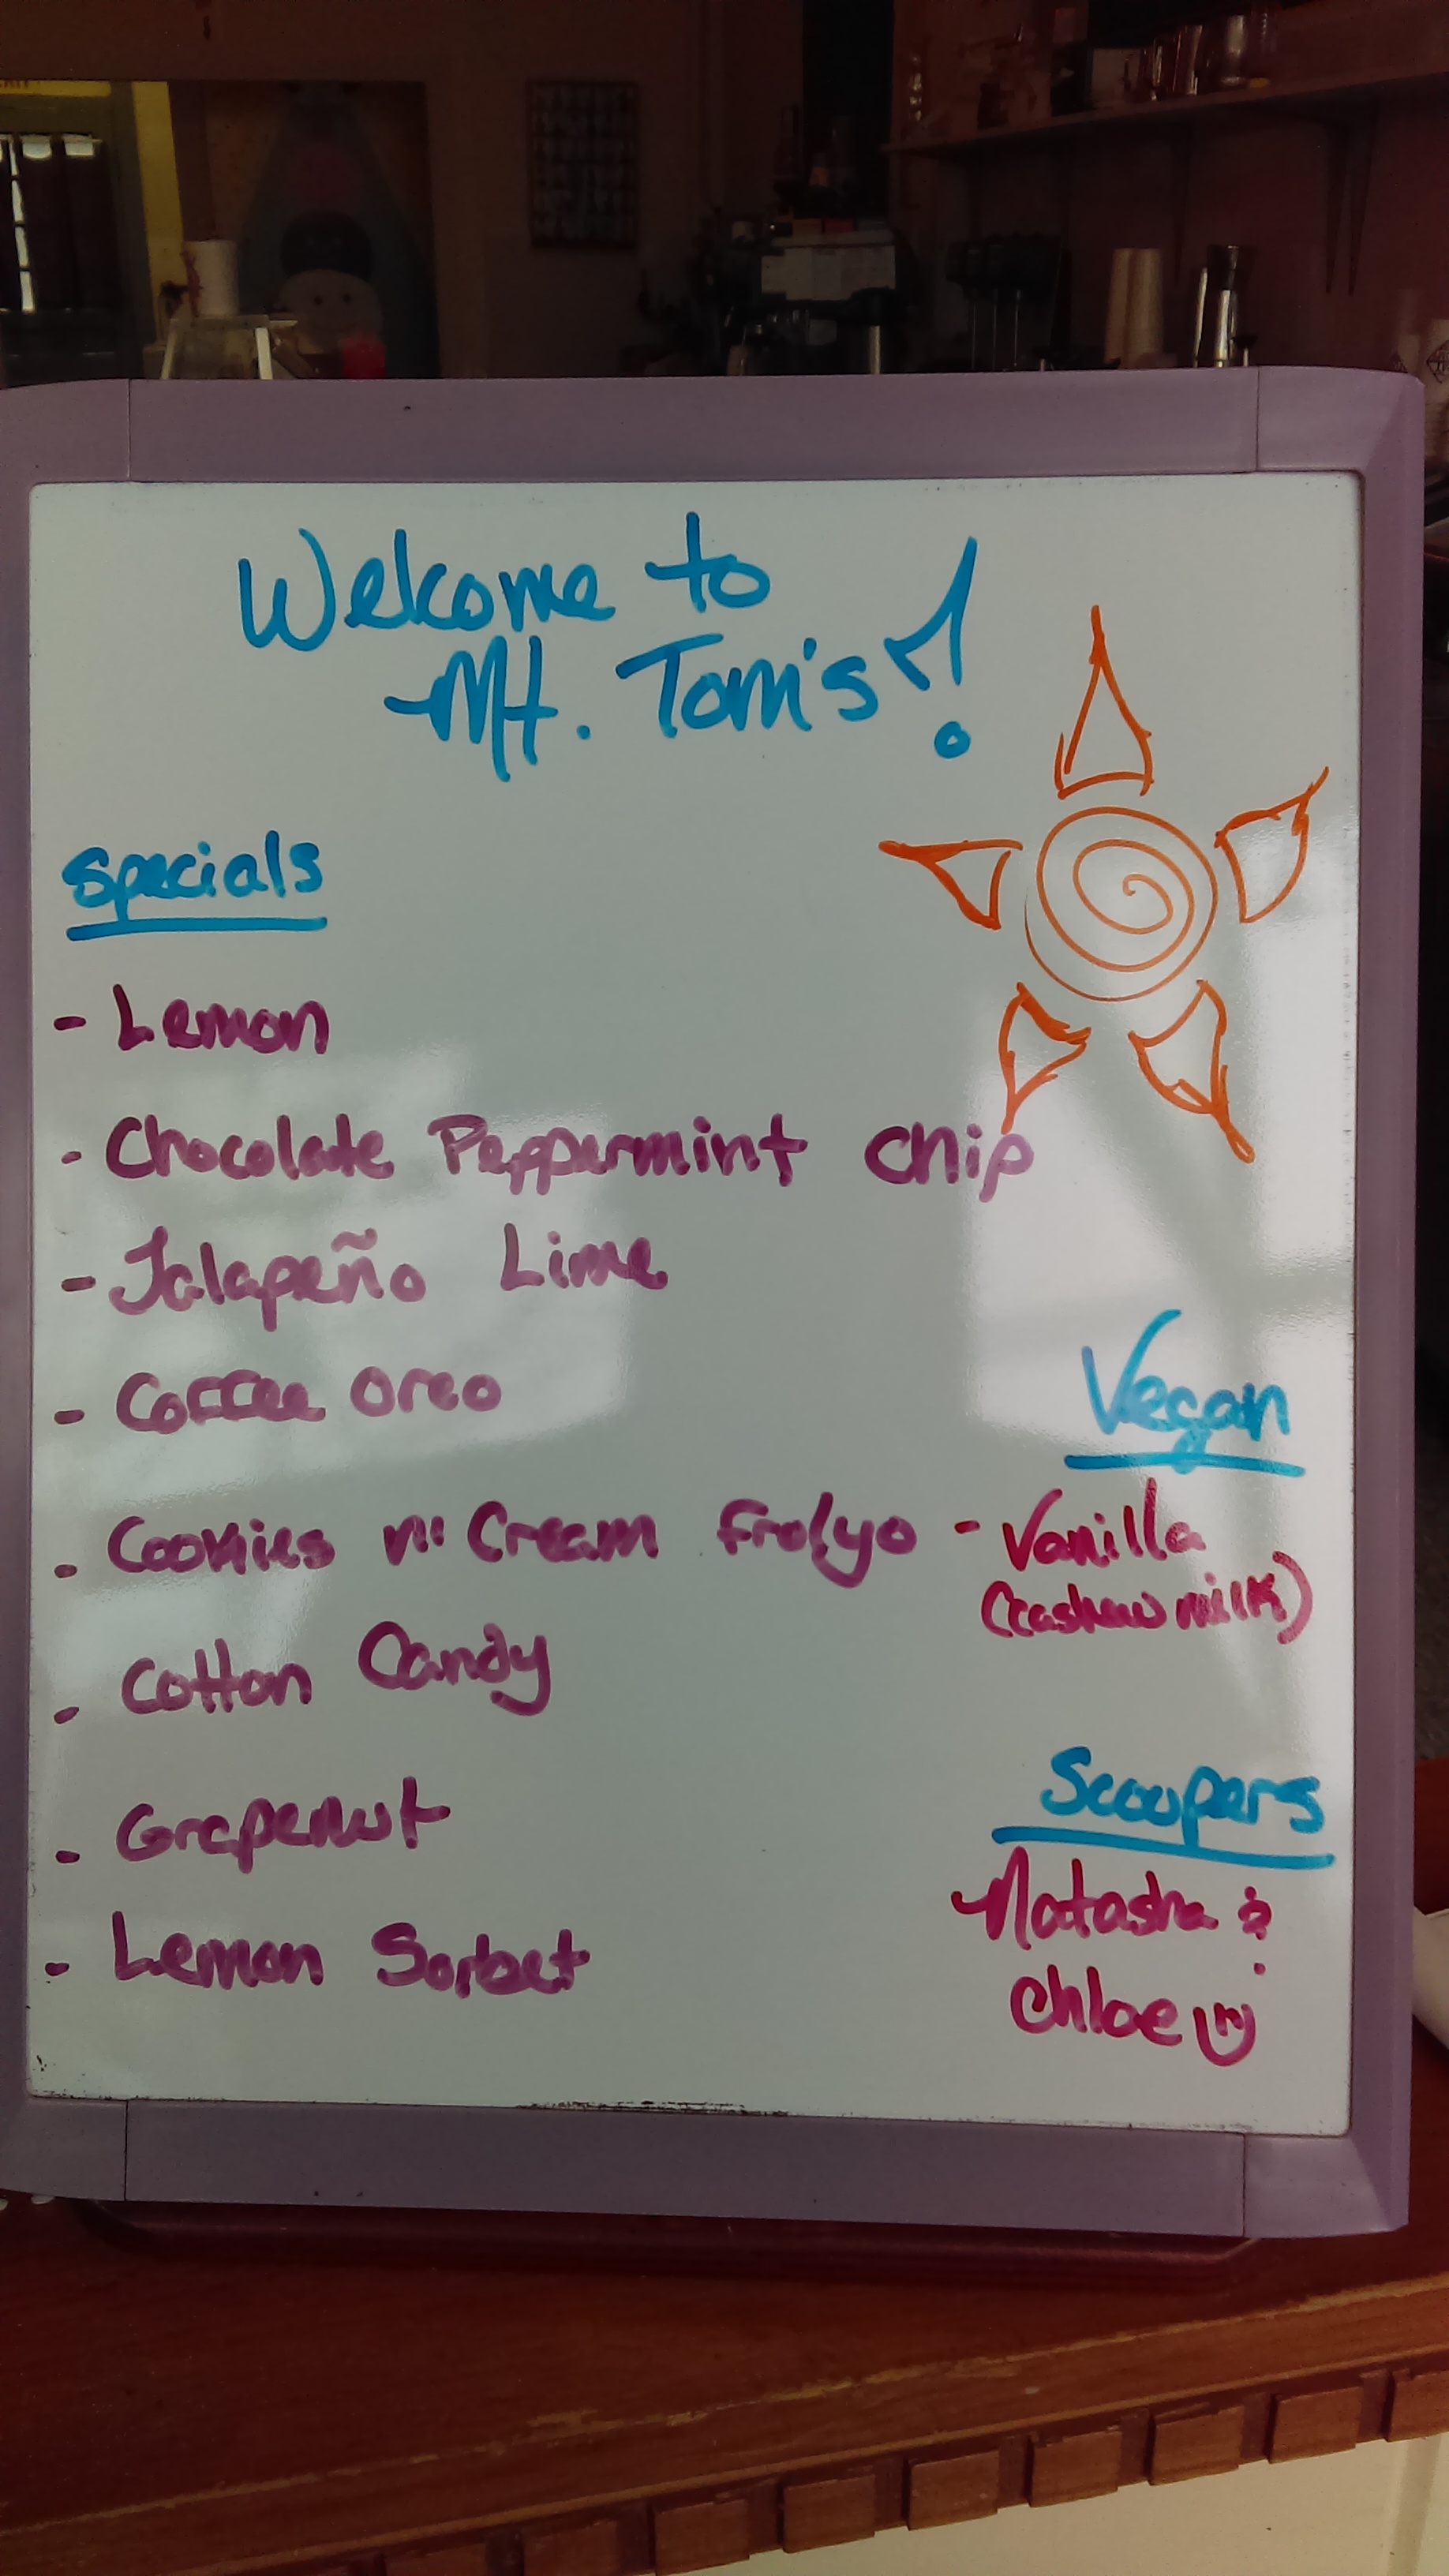 Welcome to
Mt. Tom's!
Specials
- Lemon
- Chocolate Peppermint Chip
- Jalapeño Lime
- Coffee Oreo
- Cookies n' Cream Fro/yo
- Cotton Candy
- Grapenut
- Lemon Sorbet
Vegan
- Vanilla
(cashew milk)
Scoopers
Natasha &
Chloe